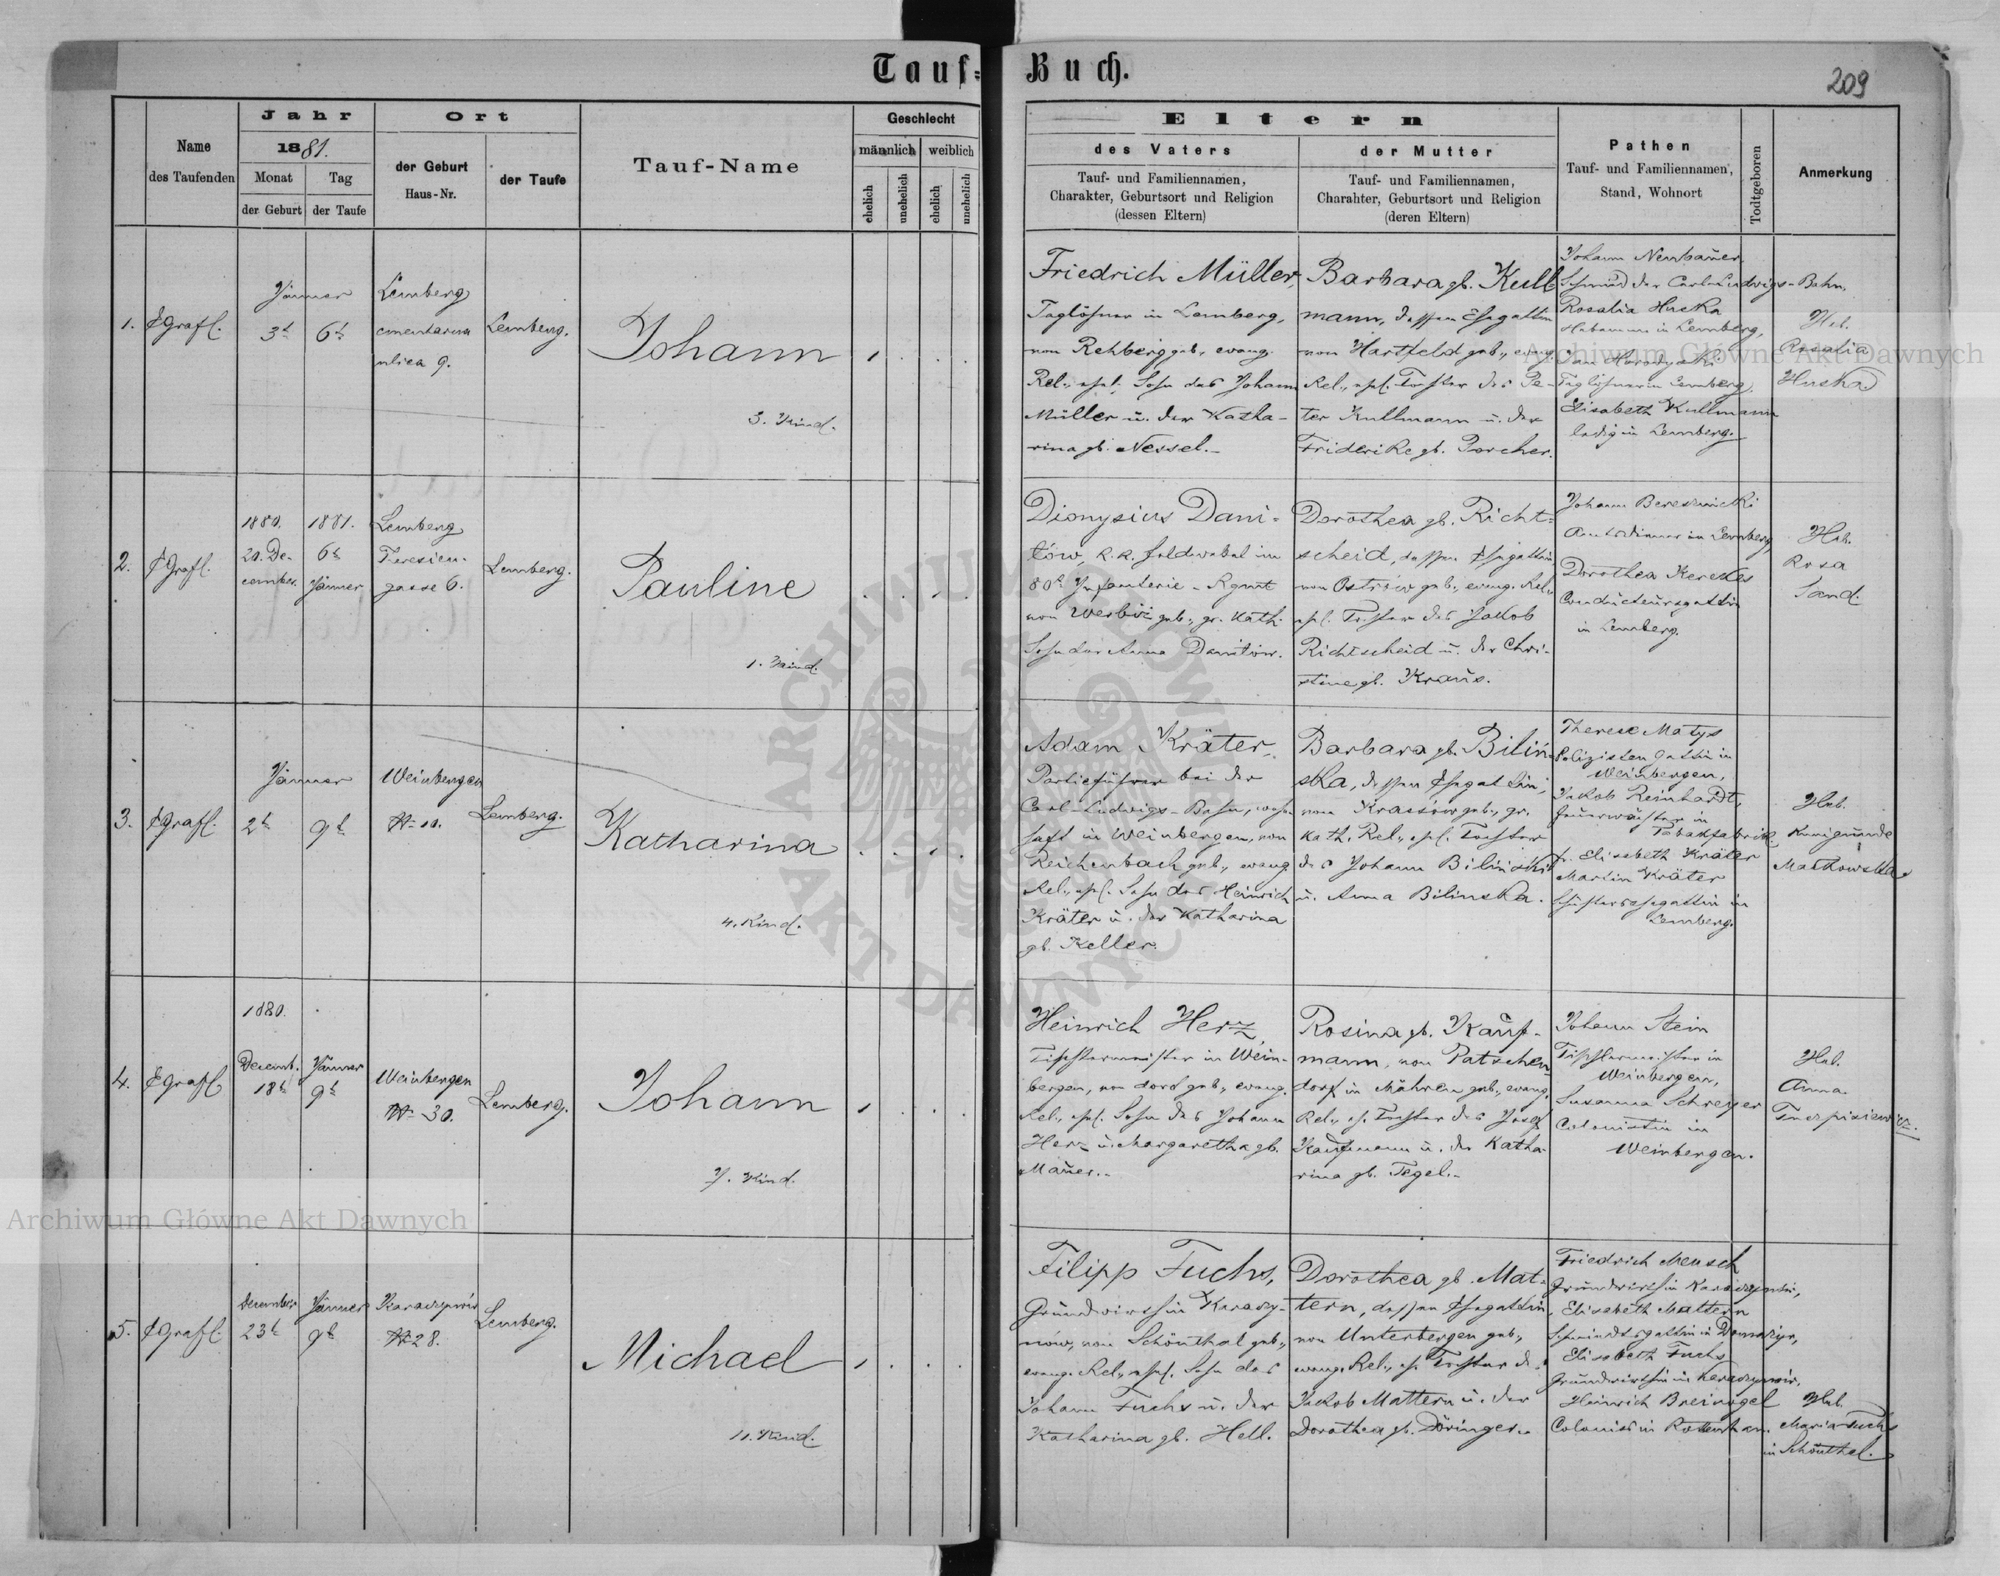 Tauf-Buch.
209
Name
des Taufenden
Jahr
1881.
Monat
der Geburt
Tag
der Taufe
Ort
der Geburt
Haus-Nr.
der Taufe
Tauf-Name
Geschlecht
männlich
weiblich
ehelich
unehelich
ehelich
unehelich
Eltern
des Vaters
Tauf- und Familiennamen,
Charakter, Geburtsort und Religion
(dessen Eltern)
der Mutter
Tauf- und Familiennamen,
Charahter, Geburtsort und Religion
(deren Eltern)
Pathen
Tauf- und Familiennamen,
Stand, Wohnort
Todtgeboren
Anmerkung
1.
Jänner
3t
6t
Lemberg
cmentarna
ulica 9.
Lemberg.
Johann
3. Kind.
Friedrich Müller,
Taglöhner in Lemberg,
von Rehberg geb., evang.
Rel., ehel. Sohn des Johann
Müller u. der Katha-
rina gb. Nessel.-
Barbara gb. Kull-
mann, dessen Ehegattin
von Hartfeld geb., evang.
Rel., ehel. Tochter des Pe-
ter Kullmann u. der
Friderike gb. Porcher.
Johann Neubauer,
Schmied der Carl-Ludwigs-Bahn,
Rosalia Huska
Hebamme in Lemberg,
Taglöhner in Lemberg,
Elisabeth Kullmann
ledig in Lemberg.
Heb.
Rosalia
Huska.
2.
1880.
20. De-
cember.
1881.
6t
Jänner
Lemberg
Theresien-
gasse 6.
Lemberg.
Pauline
1. Kind.
Dionysius Dani-
tów, k.k. Feldwebel im
80t Infanterie-Rgmt
von Werbiz geb., gr. kath.
Sohn der Anna Danitów.
Dorothea gb. Richt-
scheid, dessen Ehegattin
von Ostrów geb., evang. Rel.,
ehel. Tochter des Jakob
Richtscheid u. der Chri-
stine gb. Kraus.
Johann
Amtsdiener in Lemberg,
Dorothea Kerekes
Conducteursgattin
in Lemberg.
Heb.
Rosa
Sand.
3.
Jänner
2t
9t
Weinbergen
Lemberg.
Katharina
4. Kind.
Adam Kräter,
Partieführer bei der
Carl-Ludwigs-Bahn, wohn-
haft in Weinbergen, von
Reichenbach geb., evang.
Rel., ehel. Sohn des Heinrich
Kräter u. der Katharina
gb. Keller.
Barbara gb. Biliń-
ska, dessen Ehegattin,
von Krassów geb., gr.
kath. Rel., ehel. Tochter
des Johann Biliński
u. Anna Bilinska.
Therese Matys
Polizisten Gattin in
Weinbergen,
Jakob Reinhardt,
in
Tabakfabrik
Elisabeth Kräter
Martin Kräter
in
Lemberg.
Heb.
Kunigunde
Małkowska.
4.
1880.
Decemb.
18t
Jänner
9t
Weinbergen
Nr 30.
Lemberg.
Johann
7. Kind.
Heinrich Herz,
Tischlermeister in Wein-
bergen, von dort geb., evang.
Rel., ehel. Sohn des Johann
Herz u. Margaretha gb.
Mauer.-
Rosina gb. Kauf-
mann, von Patschen-
dorf in Mähren geb., evang.
Rel., eh. Tochter des Josef
Kaufmann u. der Katha-
rina gb. Tegel.-
Johann Stein
Tischlermeister in
Weinbergen,
Susanna Schreyer
Colonistin in
Weinbergen.
Heb.
Anna
5.
December
23t
Jänner
9t
Karaczynów
Nr 28.
Lemberg.
Michael
11. Kind.
Filipp Fuchs,
Grundwirth in Karaczy-
nów, von Schönthal geb.,
evang. Rel., ehel. Sohn des
Johann Fuchs u. der
Katharina gb. Hell.
Dorothea gb. Mat-
tern, dessen Ehegattin,
von Unterbergen geb.,
evang. Rel., eh. Tochter d.
Jakob Mattern u. der
Dorothea gb. Döringer.-
Friedrich Mensch
Grundwirth in Karaczynów,
Elisabeth Mattern
Elisabeth Fuchs
Grundwirthin in Karaczynów,
Heinrich Breinogel
Colonist in
Heb.
Maria Fuchs
in Schönthal.
Archiwum Główne Akt Dawnych
Archiwum Główne Akt Dawnych